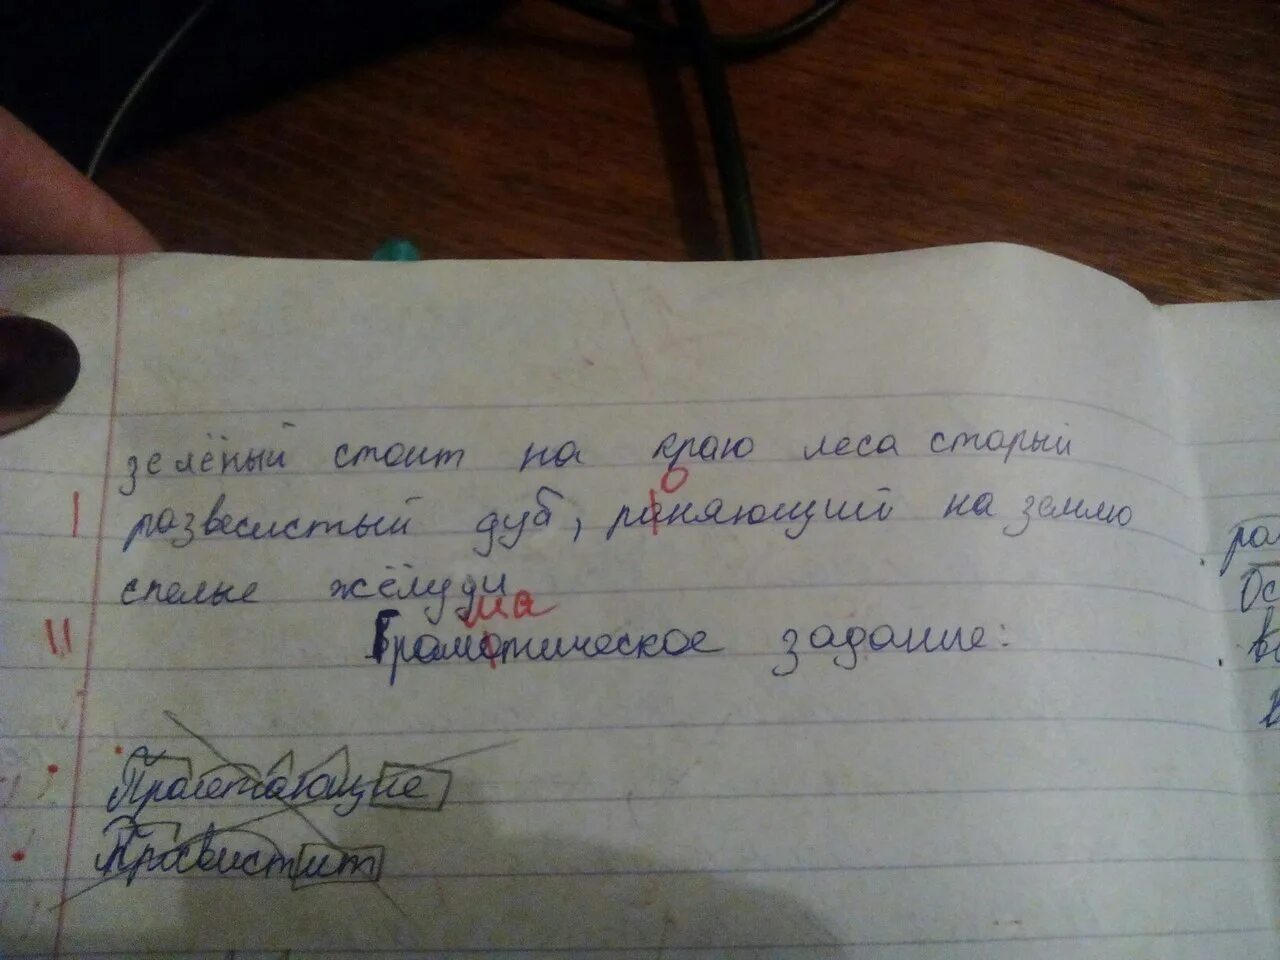 зелёный стоит на краю леса старый
о
I развесистый дуб, раняющий на землю
спелые жёлуди
ма
II Грамотическое задание:
Пролетающие
Просвистит